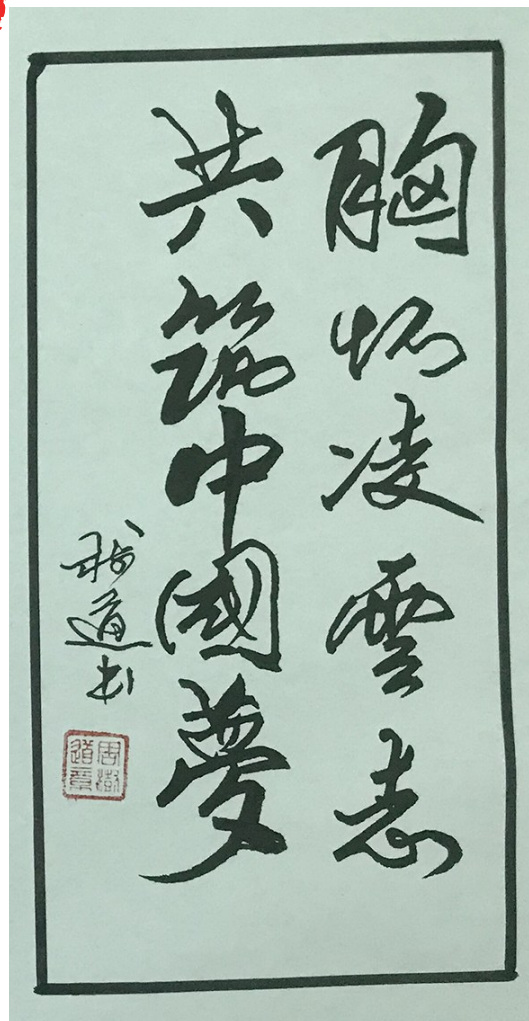 胸怀凌雲志
共筑中國夢
树道书
周树道章